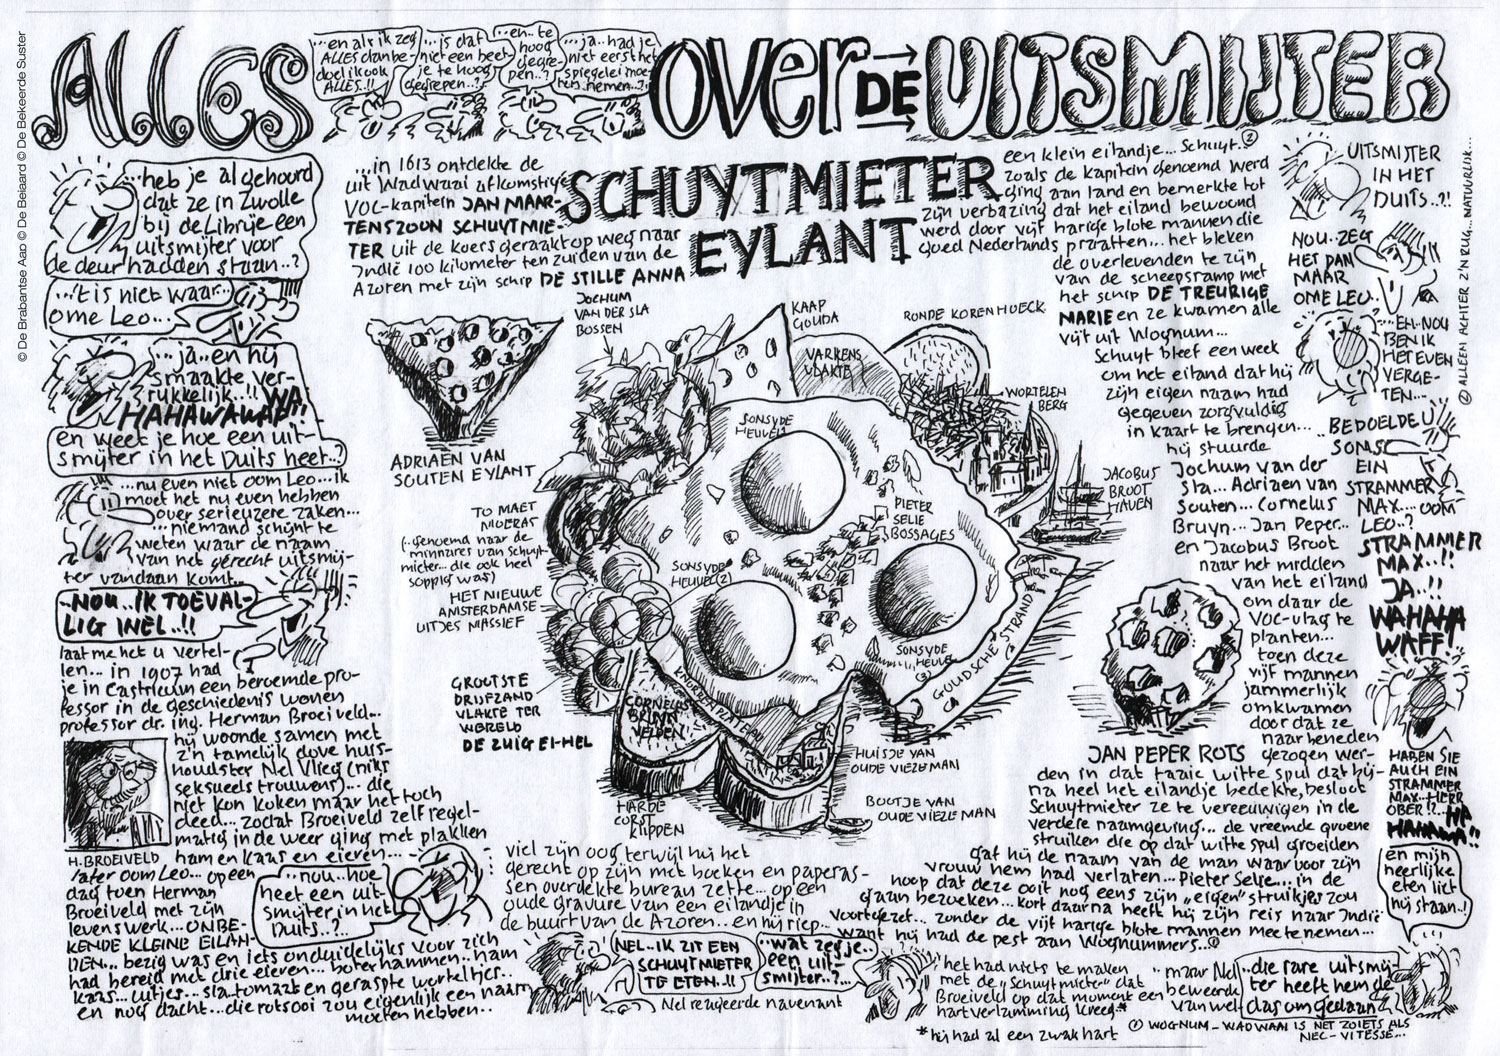 © De Brabantse Aap © De Beiaard © De Bekeerde Suster
ALLES
...en als ik zeg
ALLES dan be-
doel ik ook
ALLES..!!
...is dat
niet een beet-
je te hoog
gegrepen..?
..en.. te
hoog
gegre-
pen..?
...ja.. had je
niet eerst het
spiegelei moe-
ten nemen...?
OVER DE UITSMIJTER
...heb je al gehoord
dat ze in Zwolle
bij de Librije een
uitsmijter voor
de deur hadden staan..?
...'t is niet waar...
ome Leo...
...ja.. en hij
smaakte ver-
rukkelijk..!! WA
HAHAWAWAF!!
en weet je hoe een uit-
smijter in het Duits heet..?
...nu even niet oom Leo... ik
moet het nu even hebben
over serieuzere zaken...
...niemand schijnt te
weten waar de naam
van het gerecht uitsmij-
ter vandaan komt...
..NOU.. IK TOEVAL-
LIG WEL..!!
laat me het u vertel-
len... in 1907 had
je in Castricum een beroemde pro-
fessor in de geschiedenis wonen
professor dr. ing. Herman Broeiveld...
hij woonde samen met
z'n tamelijk dove huis-
houdster Nel Vlieg (niks
seksueels trouwens)... die
niet kon koken maar het toch
deed... zodat Broeiveld zelf regel-
matig in de weer ging met plakken
ham en kaas en eieren...
H. BROEIVELD
later oom Leo... op een
dag toen Herman
Broeiveld met zijn
levenswerk... ONBE-
KENDE KLEINE EILAN-
DEN... bezig was en iets onduidelijks voor zich
had bereid met drie eieren... boterhammen.. ham
kaas... uitjes... sla.. tomaat en geraspte worteltjes..
en nog dacht... die rotsooi zou eigenlijk een naam
moeten hebben..
..nou.. hoe
heet een uit-
smijter in het
Duits..?..
...in 1613 ontdekte de
uit Wadwaai afkomstige
VOC-kapitein JAN MAAR-
TENSZOON SCHUYTMIE-
TER uit de koers geraakt op weg naar
Indië 100 kilometer ten zuiden van de
Azoren met zijn schip DE STILLE ANNA
SCHUYTMIETER
EYLANT
een klein eilandje... Schuyt..②
zoals de kapitein genoemd werd
ging aan land en bemerkte tot
zijn verbazing dat het eiland bewoond
werd door vijf harige blote mannen die
goed Nederlands praatten... het bleken
de overlevenden te zijn
van de scheepsramp met
het schip DE TREURIGE
MARIE en ze kwamen alle
vijf uit Wognum...
Schuyt bleef een week
om het eiland dat hij
zijn eigen naam had
gegeven zorgvuldig
in kaart te brengen...
hij stuurde
Jochum van der
Sla... Adriaen van
Souten... Cornelus
Bruyn... Jan Peper...
en Jacobus Broot
naar het midden
van het eiland
om daar de
VOC-vlag te
planten...
toen deze
vijf mannen
jammerlijk
omkwamen
doordat ze
naar beneden
gezogen wer-
den in dat taaie witte spul dat bij-
na heel het eilandje bedekte, besloot
Schuytmieter ze te vereeuwigen in de
verdere naamgeving... de vreemde groene
struiken die op dat witte spul groeiden
gaf hij de naam van de man waarvoor zijn
vrouw hem had verlaten... Pieter Selie... in de
hoop dat deze ooit nog eens zijn „eigen" struikjes zou
gaan bezoeken... kort daarna heeft hij zijn reis naar Indië
voortgezet... zonder de vijf harige blote mannen mee te nemen...
want hij had de pest aan Wognummers...①
ADRIAEN VAN
SOUTEN EYLANT
JOCHUM
VAN DER SLA
BOSSEN
KAAP
GOUDA
VARKENS
VLAKTE
RONDE KORENHOECK
WORTELEN
BERG
SONSYDE
HEUVEL
PIETER
SELIE
BOSSAGES
JACOBUS
BROOT
HAVEN
TO MAET
MOERAS
(..genoemd naar de
minnares van Schuyt-
mieter... die ook heel
soppig was)
SONSYDE
HEUVEL (2)
HET NIEUWE
AMSTERDAMSE
UITJES MASSIEF
SONSYDE
HEUVEL
(3)
GOUDSCHE STRAND
GROOTSTE
DRIJFZAND
VLAKTE TER
WERELD
DE ZUIG EI-HEL
CORNELUS
BRUYN
VELDEN
KNORREN PLATEAU
HARDE
CORST
KLIPPEN
HUISJE VAN
OUDE VIEZE MAN
BOOTJE VAN
OUDE VIEZE MAN
JAN PEPER ROTS
viel zijn oog terwijl hij het
gerecht op zijn met boeken en paperas-
sen overdekte bureau zette... op een
oude gravure van een eilandje in
de buurt van de Azoren... en hij riep...
NEL.. IK ZIT EEN
SCHUYTMIETER
TE ETEN..!!
..wat zeg je..
een uit-
smijter..?
Nel reageerde navenant
'het had niets te maken
met de „Schuytmieter" dat
Broeiveld op dat moment een
hartverlamming kreeg*
* hij had al een zwak hart
..maar Nel
beweerde
van wel
..die rare uitsmij-
ter heeft hem de
das om gedaan
① WOGNUM-WADWAAI IS NET ZOIETS ALS
NEC-VITESSE...
UITSMIJTER
IN HET
DUITS..?!
NOU.. ZEG
HET DAN
MAAR
OME LEO..
...EH.. NOU
BEN IK
HET EVEN
VERGE-
TEN...
..BEDOELDE U
SOMS
EIN
STRAMMER
MAX... OOM
LEO..?
STRAMMER
MAX...!!
JA..!!
WAHAHA
WAFF!
HABEN SIE
AUCH EIN
STRAMMER
MAX.. HERR
OBER!?.. HA
HAHAWA!!
en mijn
heerlijke
eten liet
hij staan..!
② ALLEEN ACHTER Z'N RUG... NATUURLIJK...